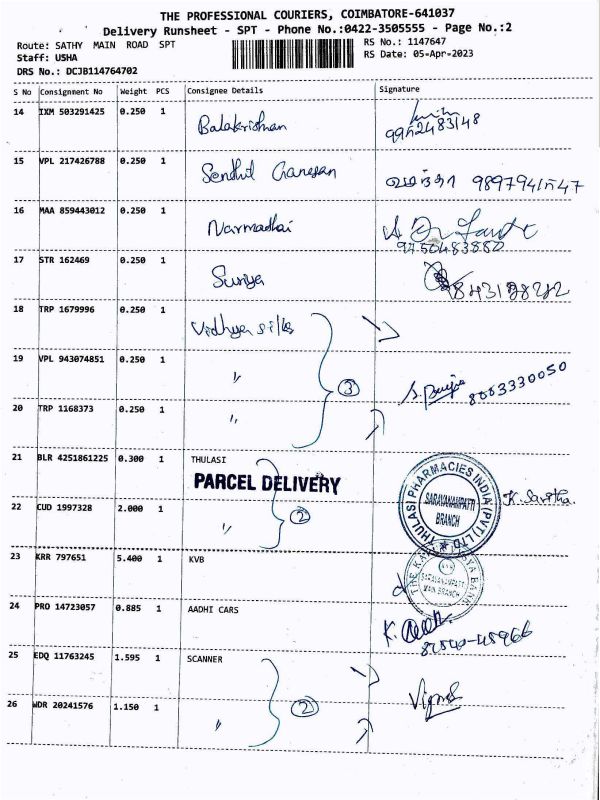 THE PROFESSIONAL COURIERS, COIMBATORE-641037
Delivery Runsheet - SPT - Phone No.:0422-3505555 - Page No.:2
Route: SATHY MAIN ROAD SPT
RS No.: 1147647
Staff: USHA
RS Date: 05-Apr-2023
DRS No.: DCJB114764702
S No Consignment No Weight PCS Consignee Details Signature
14 IXM 503291425 0.250 1 Balakrishnan
9952483148
15 VPL 217426788 0.250 1 Sendhil Ganesan 9897941547
16 MAA 859443012 0.250 1 Narmadhai
9750483880
17 STR 162469 0.250 1 Suriya
18 TRP 1679996 0.250 1 Vidhya silks
19 VPL 943074851 0.250 1 〃 ③ 8883330050
20 TRP 1168373 0.250 1 〃
21 BLR 4251861225 0.300 1 THULASI
PARCEL DELIVERY
THULASI PHARMACIES INDIA (PVT) LTD
SARAVANAMPATTI
BRANCH
22 CUD 1997328 2.000 1 〃 ②
23 KRR 797651 5.400 1 KVB
SARAVANAMPATTI
MAIN BRANCH
24 PRO 14723057 0.885 1 AADHI CARS
25 EDQ 11763245 1.595 1 SCANNER
Vignesh
26 WDR 20241576 1.150 1 〃 ②